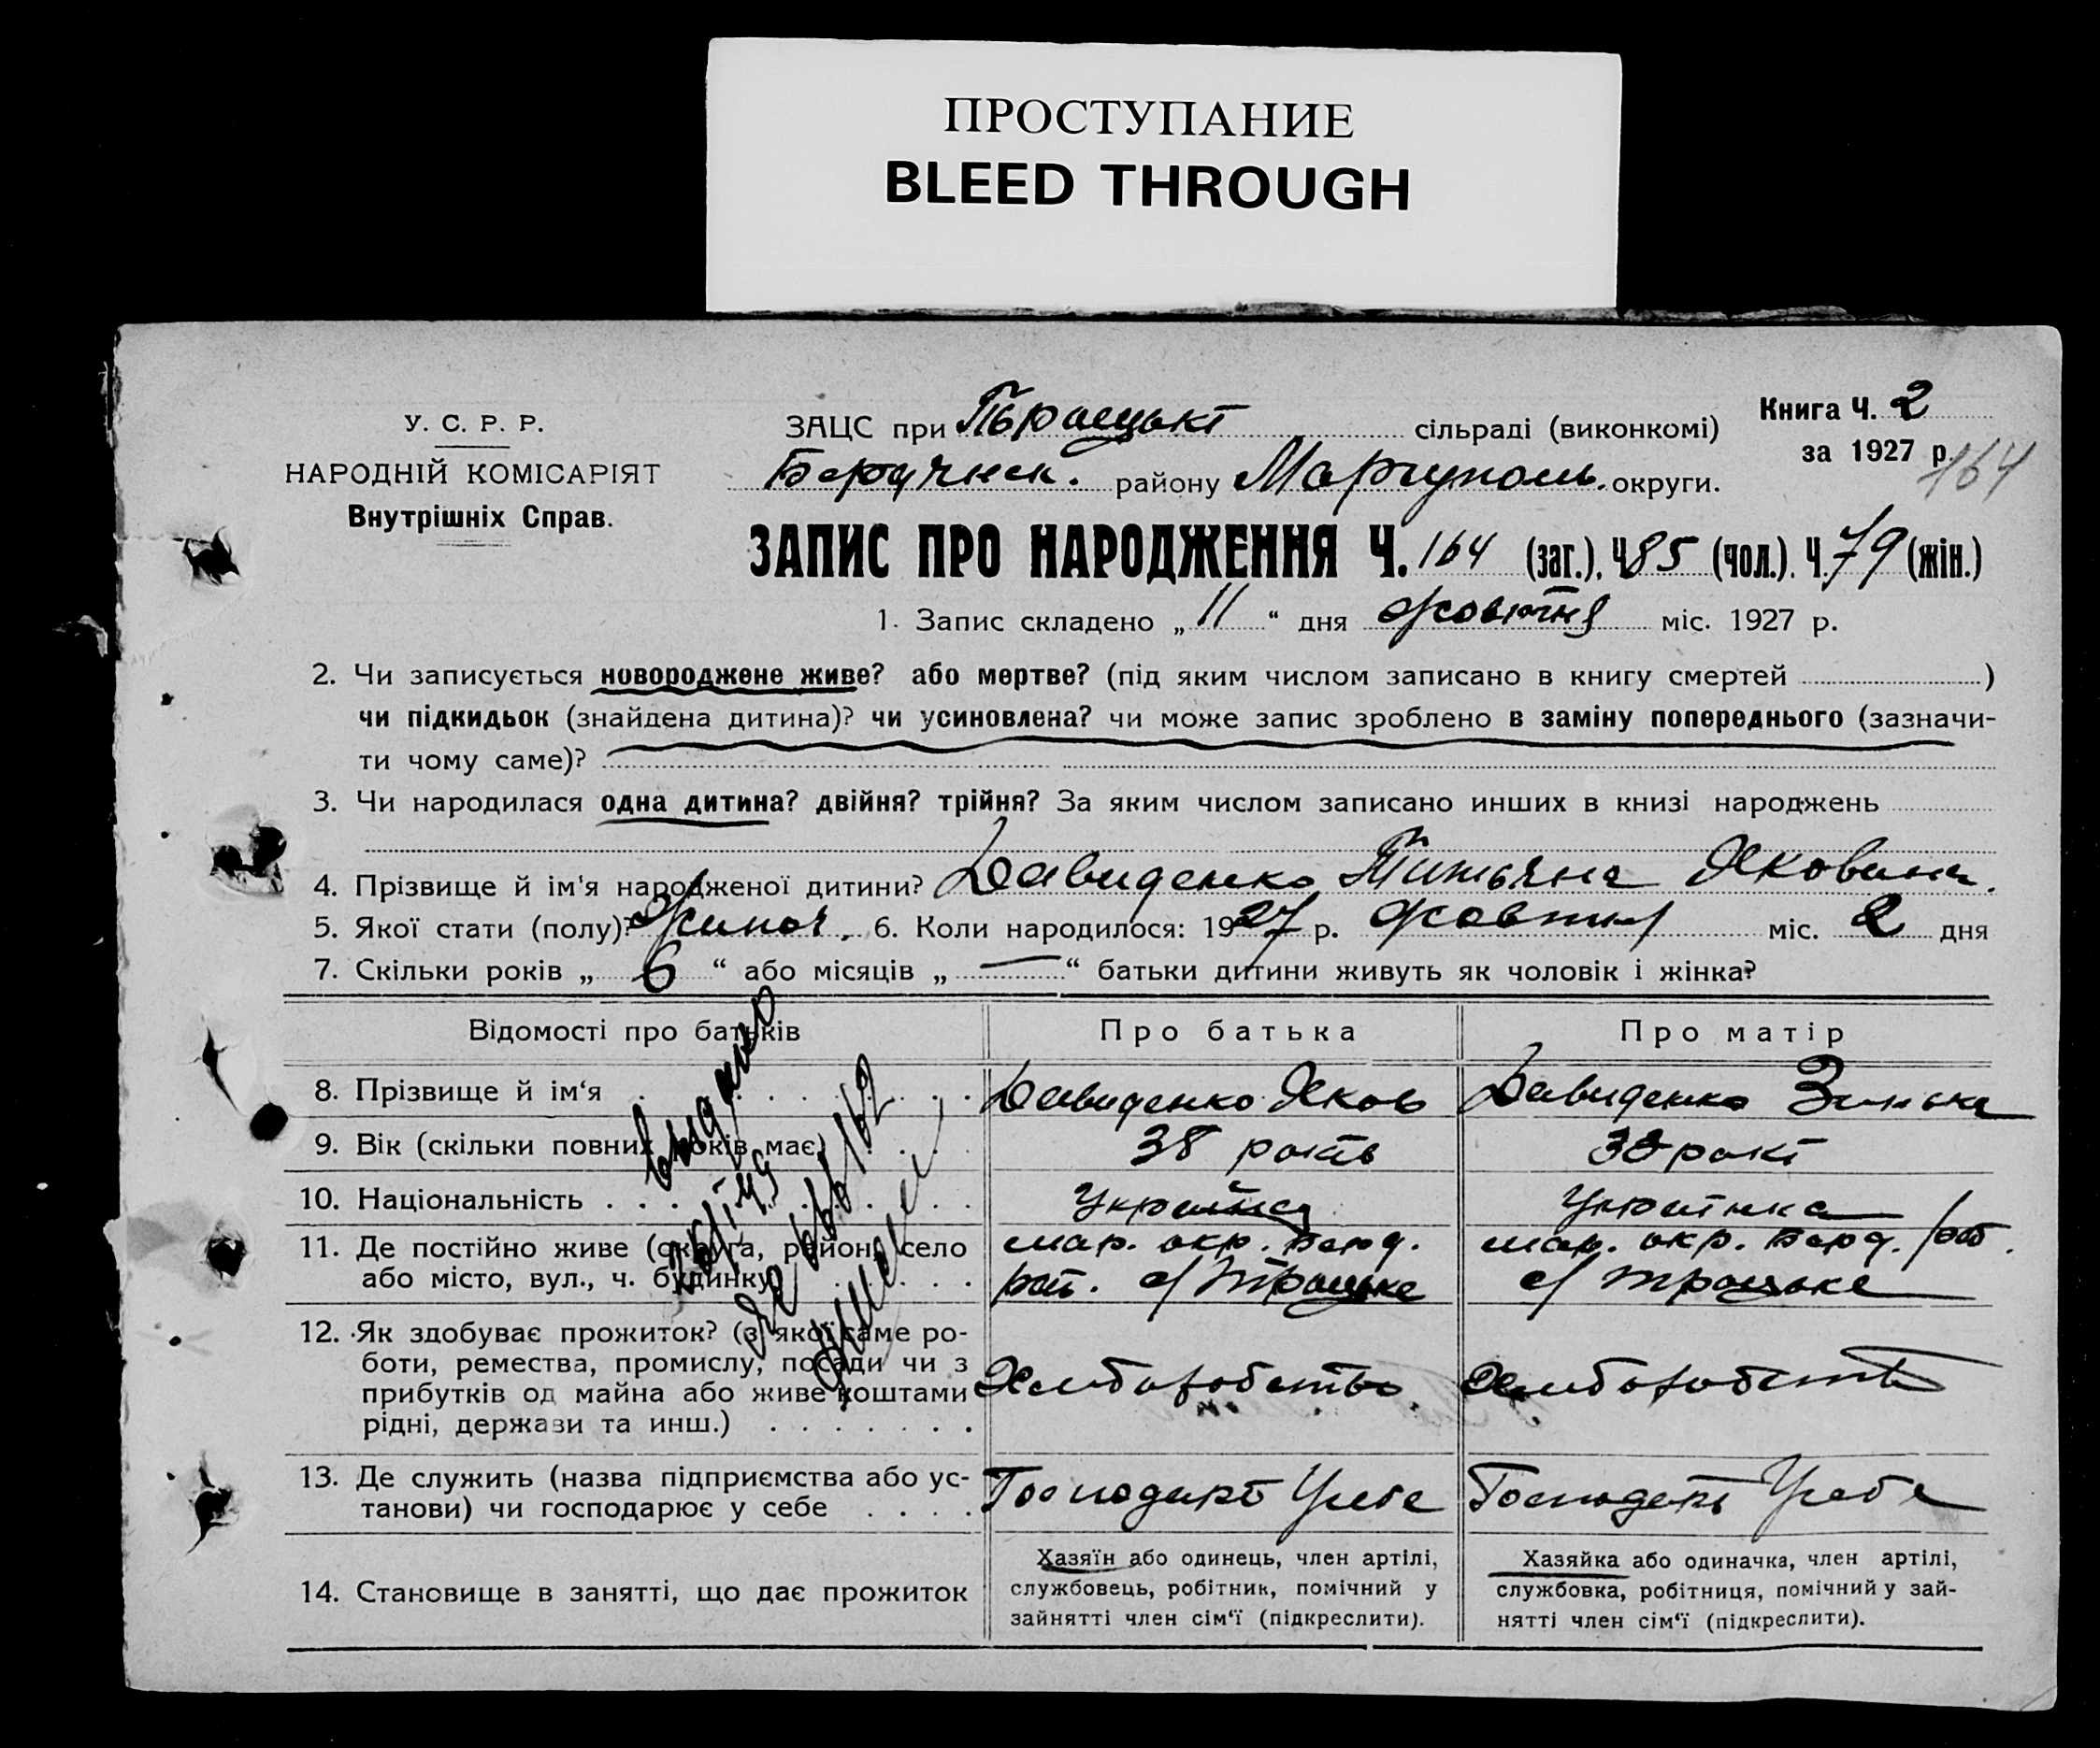 ПРОСТУПАНИЕ
BLEED THROUGH
У. С. Р. Р.
НАРОДНІЙ КОМІСАРІЯТ
Внутрішніх Справ.
ЗАЦС при сільраді (виконкомі)
району Маріуполь. округи.
Книга Ч. 2
за 1927 р.
164
ЗАПИС ПРО НАРОДЖЕННЯ Ч. 164 (заг.), Ч. 85 (чол.). Ч. 79 (жін.)
1. Запис складено „ 11 “ дня жовтня міс. 1927 р.
2. Чи записується новороджене живе? або мертве? (під яким числом записано в книгу смертей )
чи підкидьок (знайдена дитина)? чи усиновлена? чи може запис зроблено в заміну попереднього (зазначи-
ти чому саме)?
3. Чи народилася одна дитина? двійня? трійня? За яким числом записано инших в книзі народжень
4. Прізвище й ім'я народженої дитини? Давиденко Титьяна Яковина.
5. Якої стати (полу)? Жиноч. 6. Коли народилося: 1927 р. жовтня міс. 2 дня
7. Скільки років „ 6 “ або місяців „ — “ батьки дитини живуть як чоловік і жінка?
Відомості про батьків
Про батька
Про матір
8. Прізвище й ім‘я
Давиденко Яков
Давиденко Зинька
9. Вік (скільки повних років має)
38 років
38 рокі
10. Національність
Українец
Українка
11. Де постійно живе (округа, район, село
або місто, вул., ч. будинку)
мар. окр. Берд.
рай. с/ Троцьке
мар. окр. Берд. рай.
с/ Троцьке
12. Як здобуває прожиток? (з якої саме ро-
боти, ремества, промислу, посади чи з
прибутків од майна або живе коштами
рідні, держави та инш.)
Хлиборобство
Хлиборобств
13. Де служить (назва підприємства або ус-
танови) чи господарює у себе
Господарь У себе
Господарь У себе
14. Становище в занятті, що дає прожиток
Хазяїн або одинець, член артілі,
службовець, робітник, помічний у
зайнятті член сім‘ї (підкреслити).
Хазяйка або одиначка, член артілі,
службовка, робітниця, помічний у зай-
нятті член сім‘ї (підкреслити).
выдано